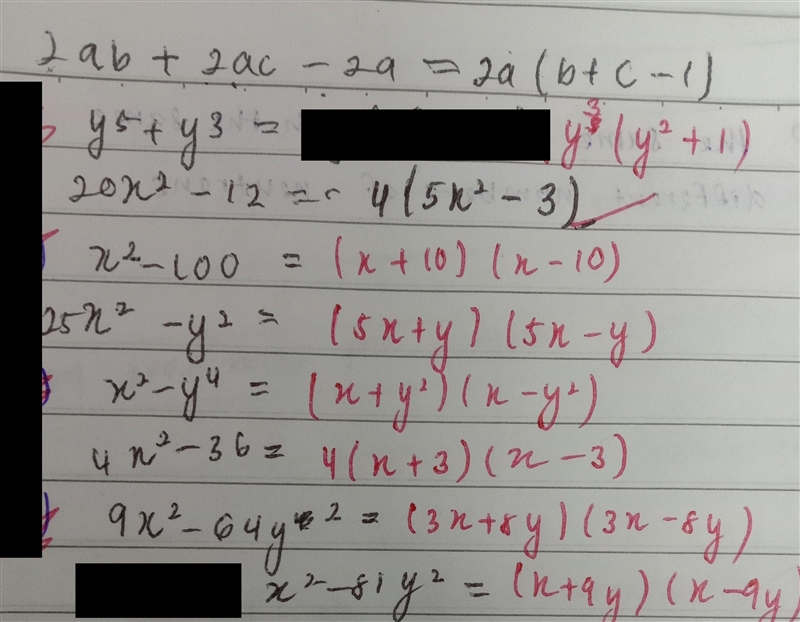 2ab + 2ac - 2a = 2a (b + c - 1)
y5 + y3 = y³ (y² + 1)
20x² - 12 = 4 (5x² - 3)
x² - 100 = (x + 10) (x - 10)
25x² - y² = (5x + y) (5x - y)
x² - y⁴ = (x + y²) (x - y²)
4x² - 36 = 4 (x + 3) (x - 3)
9x² - 64y² = (3x + 8y) (3x - 8y)
x² - 81y² = (x + 9y) (x - 9y)